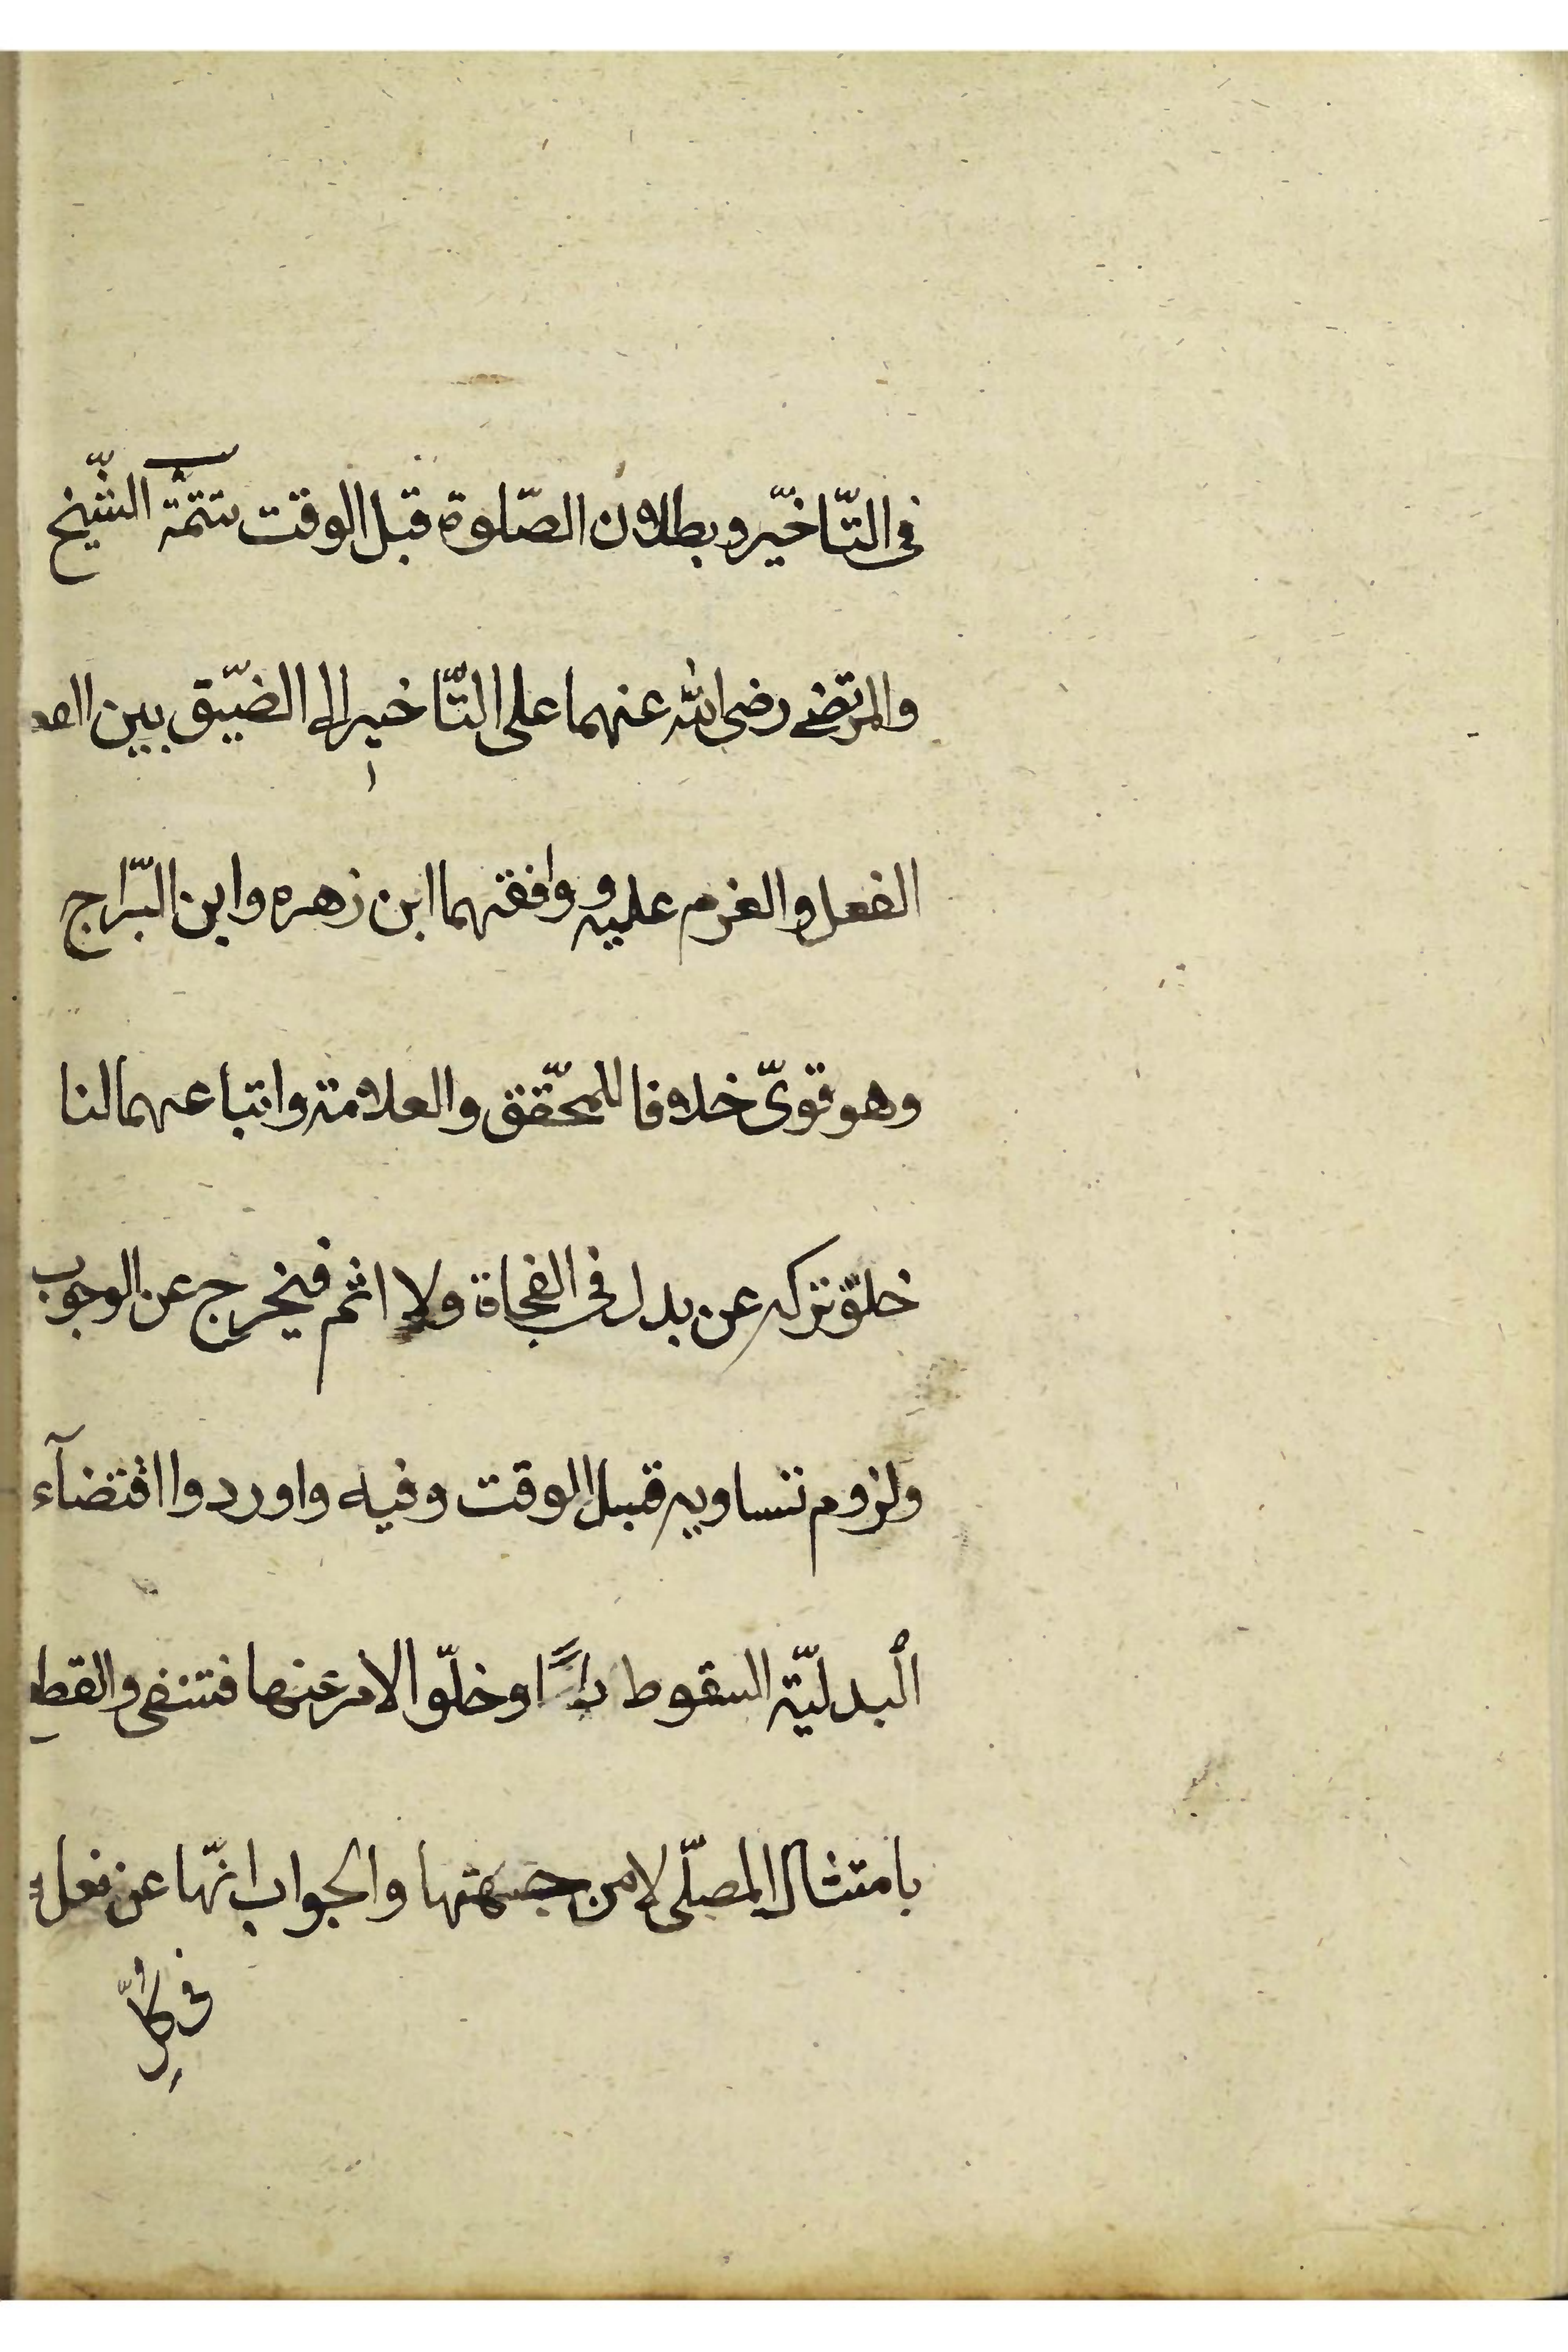 في التّاخيّر وبطلان الصّلوة قبل الوقت تتمّة الشّيخ
والمرتضى رضى الله عنهما على التّاخير الى الضيّق بين
الفعل والغرم عليه ووافقهما ابن زهره وابن البّراج
وهو قوىّ خلافا للمحّقق والعلامة واتباعهما لنا
خلوّ تركه عن بدل في الفجاة ولا اثم فيخرج عن الوجوب
ولزوم تساويه قبل الوقت وفيه واوردوا اقتضآء
البدليّة السقوط راسًا وخلّو الامر عنها فتنفى والقطع
بامتثال المصلّى لا من جهتها والجواب انّها عن فعله
في كلّ